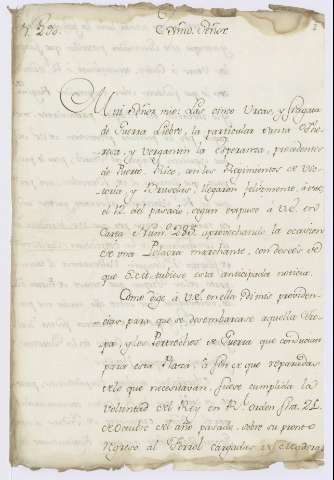 N. 290.
Exmo. Señor
Mui Señor mio: Las cinco Urcas, y fragata
de Guerra Liebre, la particular Santa The-
resa, y vergantin la Esperanza, procedentes
de Puerto Rico, con los Regimientos de Vic-
toria, y Bruselas, llegaron felizmente, à este,
el 12. del pasado, segun expuse à V.E. en
Carta Núm. 285. aprovechando la ocasion
de una Polacra marchante, con deseos de
que V.E. tubiese esta anticipada noticia.
Como dige à V.E. en ella dí mis providen-
cias, para que se desembarcase aquella Tro-
pa, y los Pertrechos de Guerra que conducian
para esta Plaza, à fin de que reparadas
de lo que necesitavan, fuese cumplida la
voluntad del Rey en Rl. orden fha. 21.
de octubre del año pasado, sobre su pronto
regreso al Ferrol cargadas de Madera